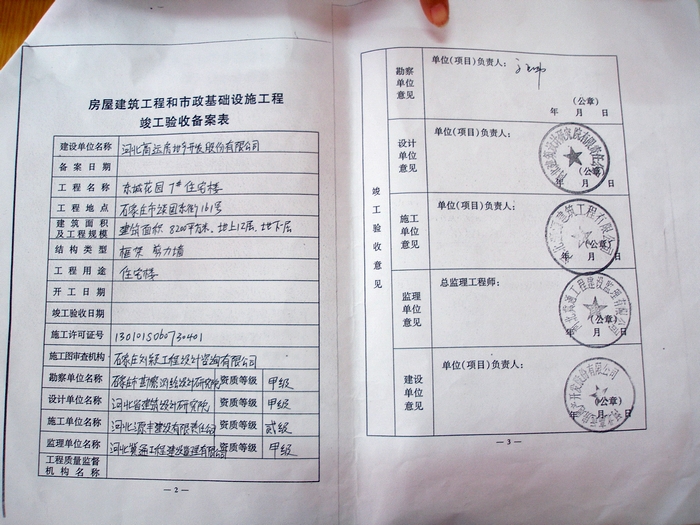 房屋建筑工程和市政基础设施工程
竣工验收备案表
建设单位名称 河北高远房地产开发股份有限公司
备案日期
工程名称 东城花园7#住宅楼
工程地点 石家庄市建国东街161号
建筑面积及工程规模 建筑面积8200平方米、地上12层、地下一层
结构类型 框架 剪力墙
工程用途 住宅楼
开工日期
竣工验收日期
施工许可证号 130101S060730401
施工图审查机构 石家庄 工程设计咨询有限公司
勘察单位名称 石家庄市勘察测绘设计研究院 资质等级 甲级
设计单位名称 河北省建筑设计研究院 资质等级 甲级
施工单位名称 河北源丰建设有限责任公司 资质等级 贰级
监理单位名称 河北冀通工程建设监理有限公司 资质等级 甲级
工程质量监督机构名称
— 2 —
竣工验收意见
勘察单位意见
单位(项目)负责人：
(公章)
年 月 日
设计单位意见
单位(项目)负责人：
年 月 日
施工单位意见
单位(项目)负责人：
(公章)
年 月 日
监理单位意见
总监理工程师：
(公章)
年 月 日
建设单位意见
单位(项目)负责人：
(公章)
年 月 日
— 3 —